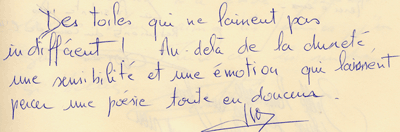 Des toiles qui ne laissent pas
indifférent ! Au-delà de la dureté,
une sensibilité et une émotion qui laissent
percer une poésie toute en douceur.